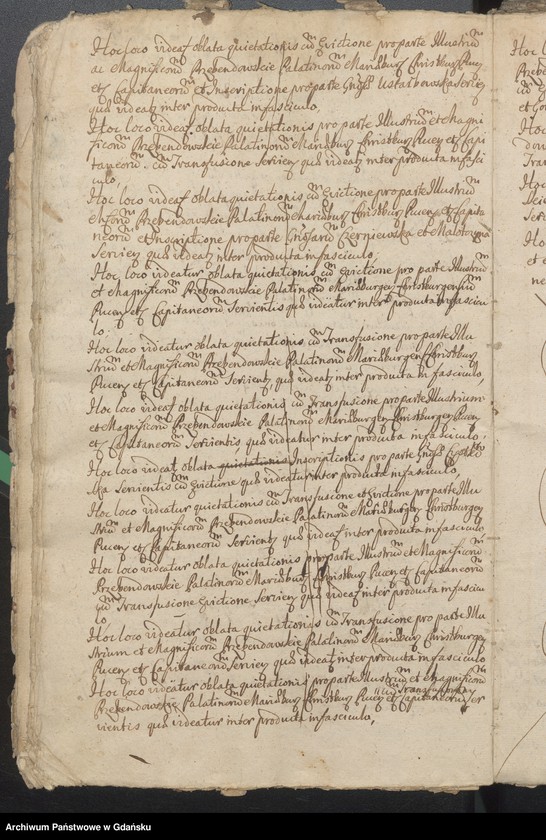 Hoc loco videat oblata quietationis cū Evictione pro parte Illustriū
ac Magnificorū Przebendowskie Palatinorū Mariæburg Christburg Pucen
et Capitaneorū et Inscriptione pro parte Gnosi Ustarbowska servien
quæ videatr inter producta in fasciculo,
Hoc loco videat oblata quietationis pro parte Illustriū et Magni
ficorū Przebendowskie Palatinorū Mariæburg Christburg Pucen et Capi
taneorū cū Transfusione Servien quæ videatr inter producta in fasci
culo,
Hoc loco videat oblata quietationis cū Evictione pro parte Illustriū
Przebendowskie Palatinorū Mariæburg Christburg Pucen et Capita
neorū et Inscriptione pro parte Czerniewska et
Servien quæ videatr inter producta in fasciculo,
Hoc loco videatur oblata quietationis cū Evictione pro parte Illustriū
et Magnificorū Przebendowskie Palatinorū Mariæburgen Christburgensiū
Pucen et Capitaneorū Servientis quæ videatur inter producta in fascicu
lo.
Hoc loco videatur oblata quietationis cū Transfusione pro parte Illu
striū et Magnificorū Przebendowskie Palatinorū Mariæburgen Christburg
Pucen et Capitaneorū Servien, quæ videatr inter producta in fasciculo,
Hoc loco videat oblata quietationis cū Transfusione pro parte Illustrium
et Magnificorū Przebendowskie Palatinorū Mariæburgen Christburgen Pucen
et Capitaneorū Servientis, quæ videatur inter producta in fasciculo.
Hoc loco videat oblata quietationis Inscriptionis pro parte Gnosi
ska Servientis cū Evictione quæ videatur inter producta in fasciculo,
Hoc loco videatur quietationis cū Transfusione et Evictione pro parte Illu
striū et Magnificorū Przebendowskie Palatinorū Mariæburgen Christburgen
Pucen et Capitaneorū Servien quæ videat inter producta in fasciculo
Hoc loco videatur oblata quietationis pro parte Illustriū et Magnificorū
Przebendowskie Palatinorū Mariæburg Christburg Pucen et Capitaneorū
cū Transfusione Evictione Servien quæ videat inter producta in fascicu
lo,
Hoc loco videatur oblata quietationis cū Transfusione pro parte Illu
strium et Magnificorū Przebendowskie Palatinorū Mariæburg Christburgen
Pucen et Capitaneorū Servien quæ videatr inter producta in fasciculo
Hoc loco videatur oblata quietationis pro parte Illustriū et Magnificorū
Przebendowskie Palatinorū Mariæburg Christburg Pucen et Capitaneorū cū Transfusione Ser
vientis quæ videatur inter producta in fasciculo,
Archiwum Państwowe w Gdańsku